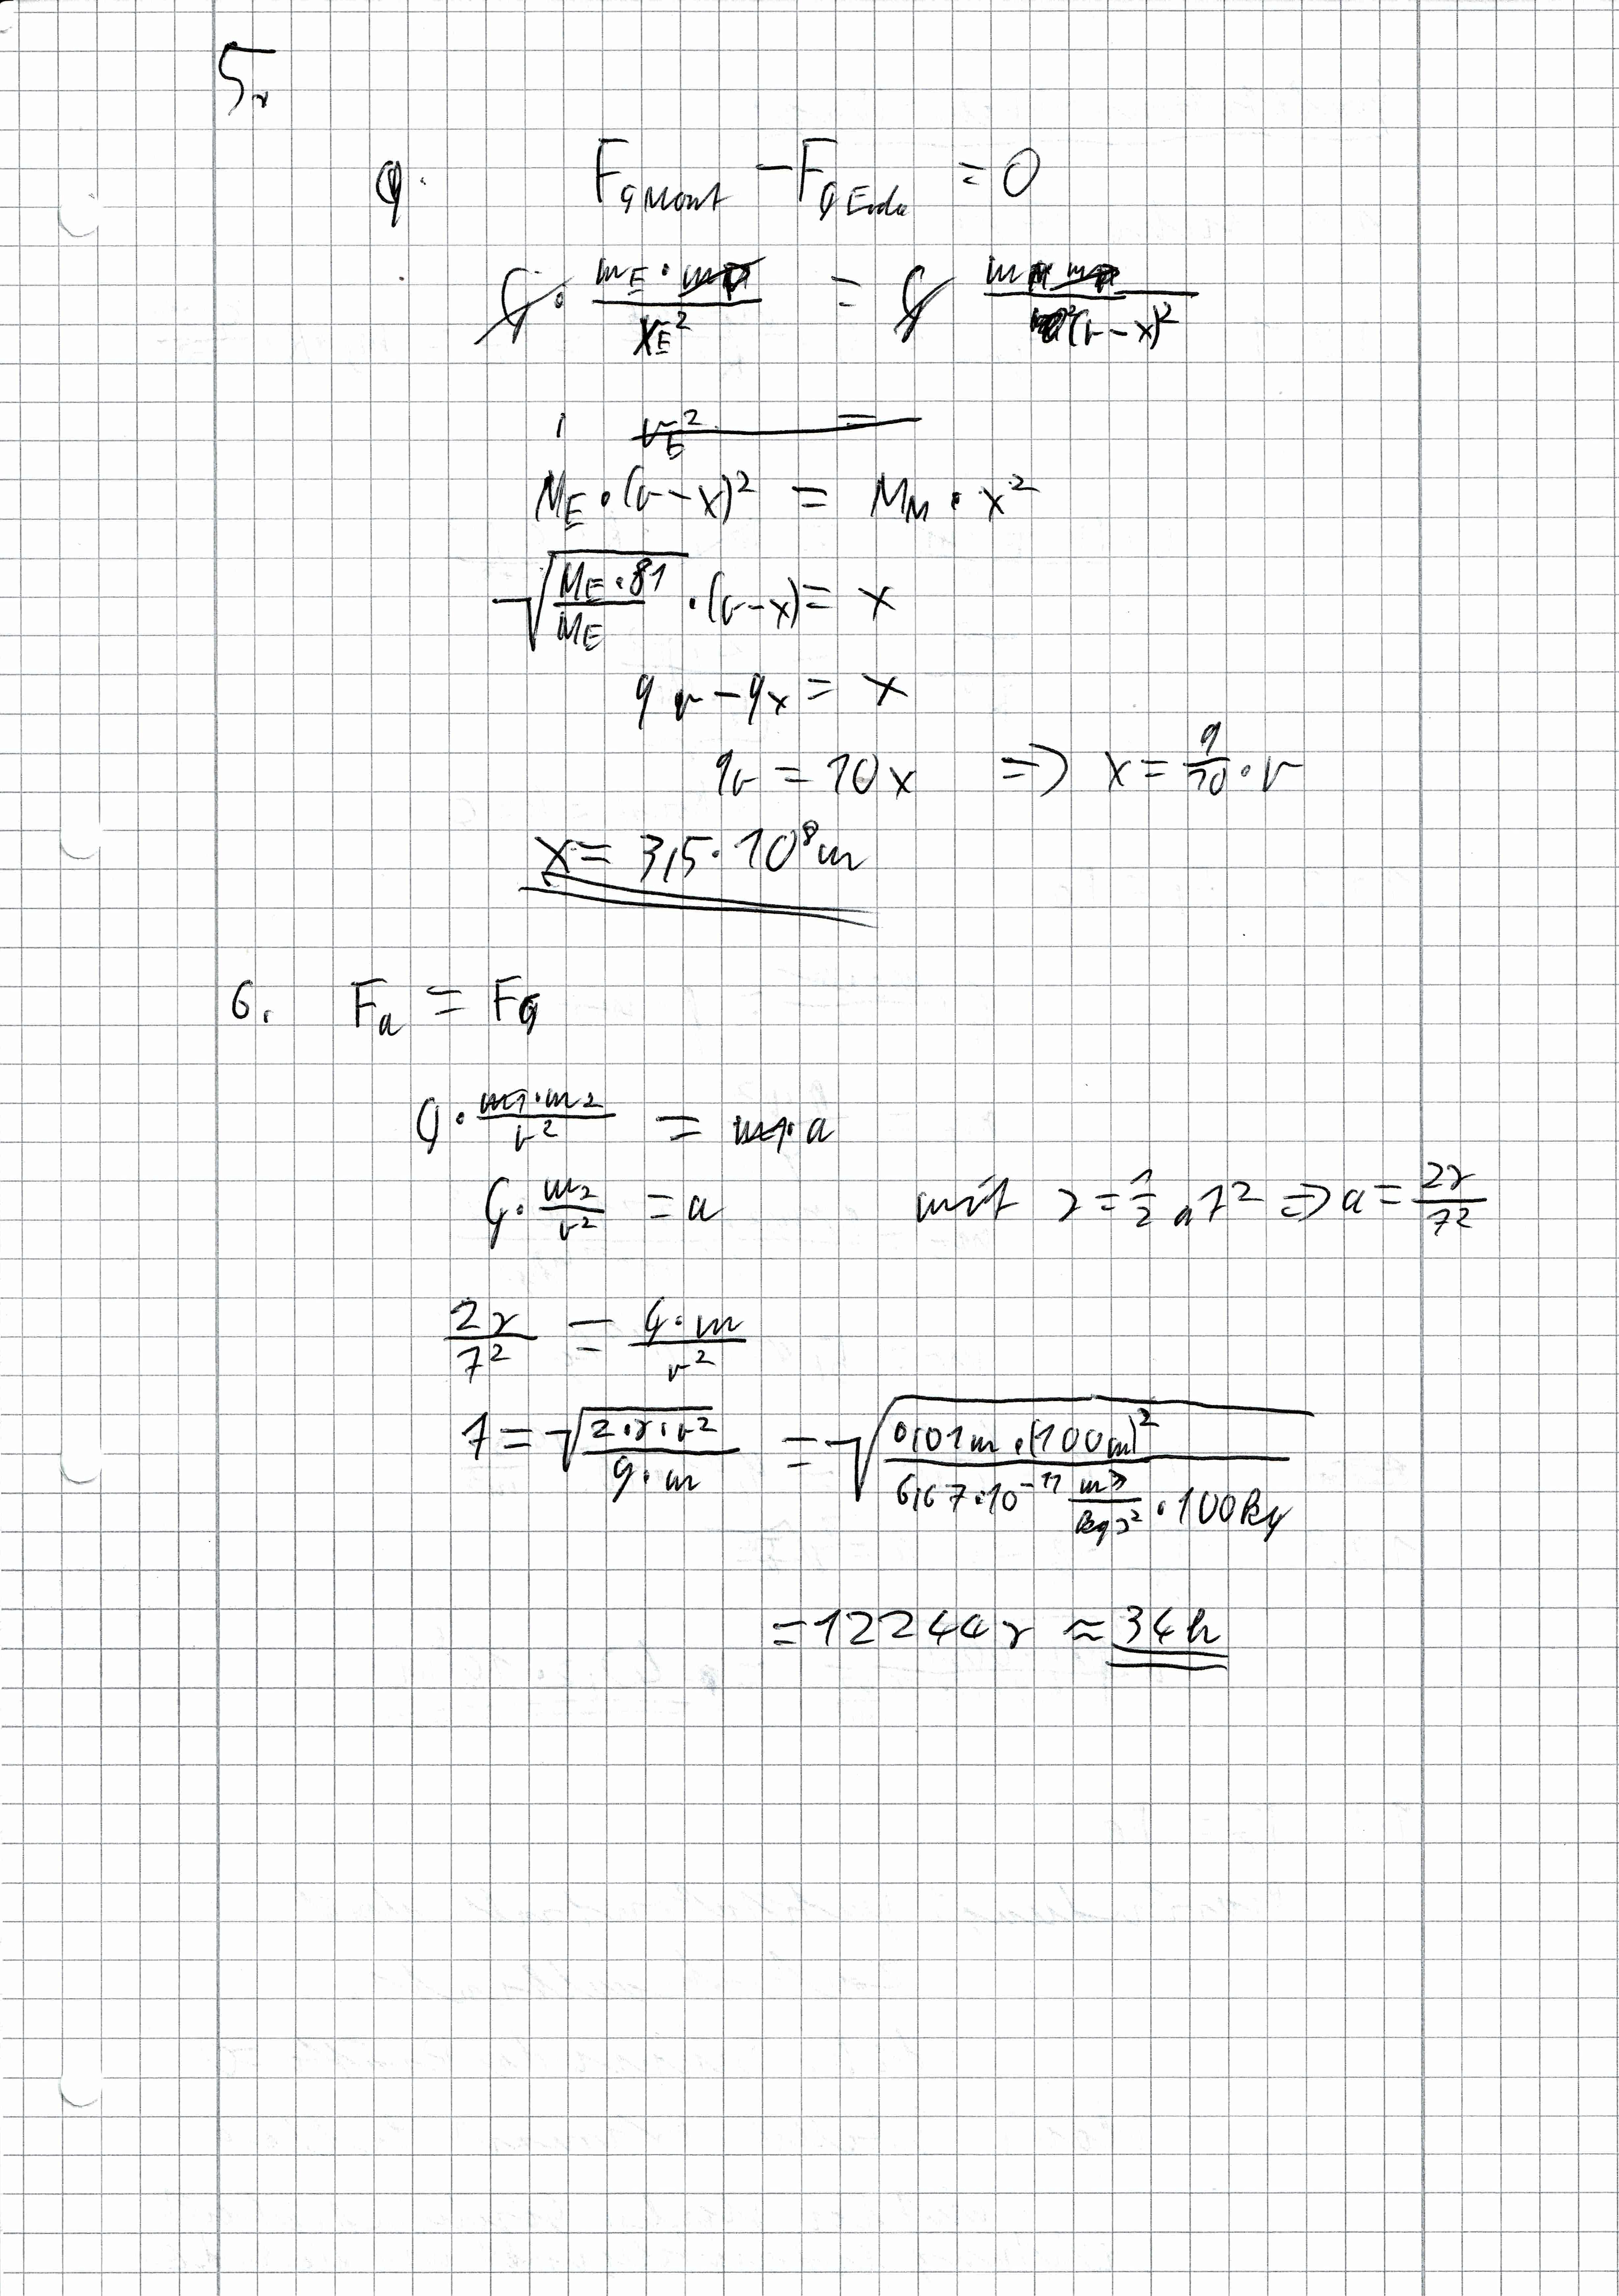 5.
F_GMond - F_GErde = 0
G · (m_E · m_P)/(x_E²) = G (m_M · m_P)/((r-x)²)
r_E² =
M_E · (r-x)² = M_M · x²
√((M_E · 81)/M_E) · (r-x) = x
9r - 9x = x
9r = 10x => x = 9/10 · r
x = 3,5 · 10⁸ m
6. F_a = F_G
G · (m1 · m2)/r² = m1 · a
G · m2/r² = a mit s = 1/2 a t² => a = 2s/t²
2s/t² = (G · m)/r²
t = √((2 · s · r²)/(G · m)) = √((0,01m · (100m)²)/(6,67 · 10⁻¹¹ m³/(kg s²) · 100kg))
= 12244s ≈ 34h